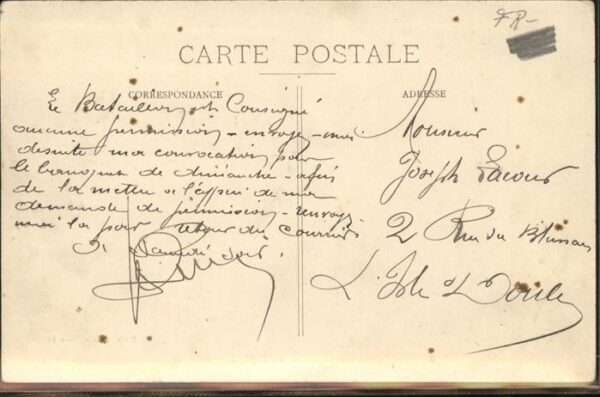 FR-
CARTE POSTALE
CORRESPONDANCE
ADRESSE
Le Bataillon est Consigné
aucune permission - envoyez-moi
desuite ma convocation pour
le banquet de dimanche - afin
de la mettre a l'appui de ma
demande de permission - renvoyez
moi la par retour du courrier
A Samedi soir.
Monsieur
Joseph Lacour
2 Rue du
L'Isle s/ Doubs